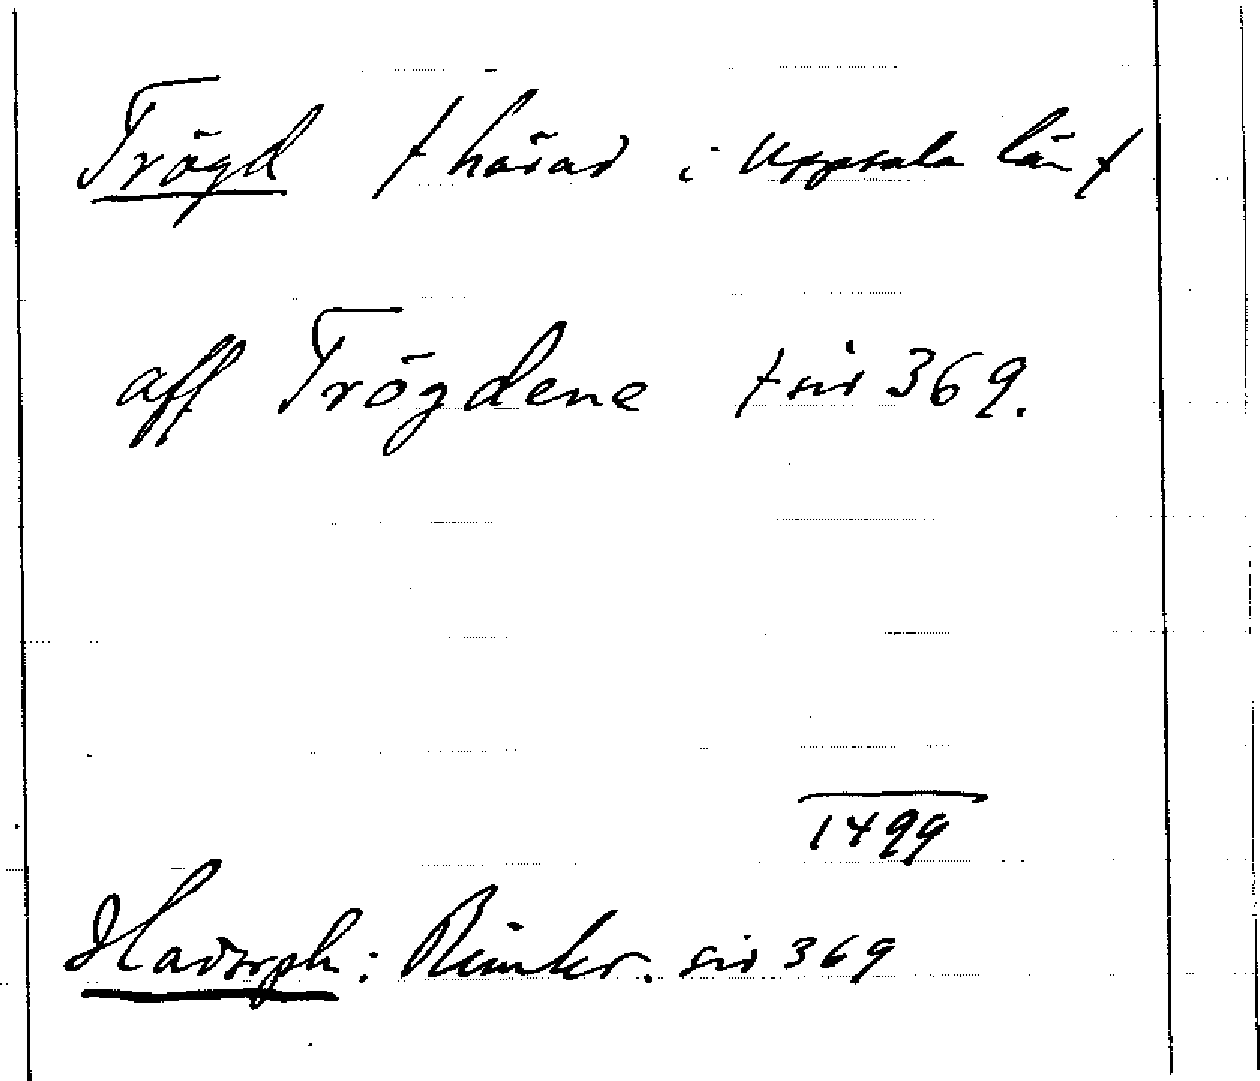 Trögd / härad i Uppsala län /
aff Trögdene / sid 369.
1499
Hadorph: Rimkr. sid 369